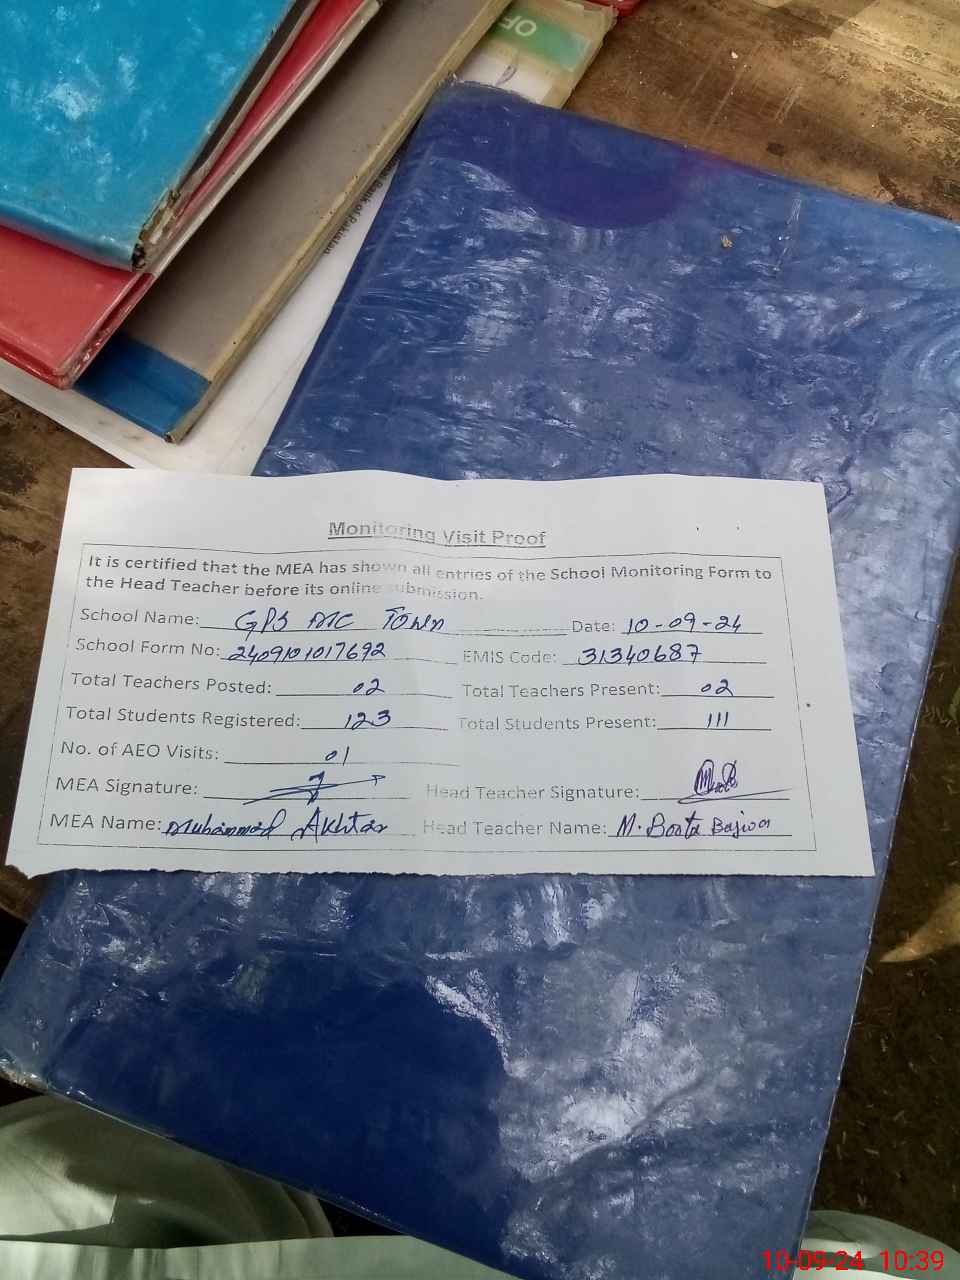 OF
Bank of Pakistan
Monitoring Visit Proof
It is certified that the MEA has shown all entries of the School Monitoring Form to
the Head Teacher before its online submission.
School Name: GPS MC Town Date: 10-09-24
School Form No: 2409101017692 EMIS Code: 31340687
Total Teachers Posted: 02 Total Teachers Present: 02
Total Students Registered: 123 Total Students Present: 111
No. of AEO Visits: 01
MEA Signature: Head Teacher Signature:
MEA Name: Muhammad Akhtar Head Teacher Name: M. Boota Bajwa
10-09-24 10:39